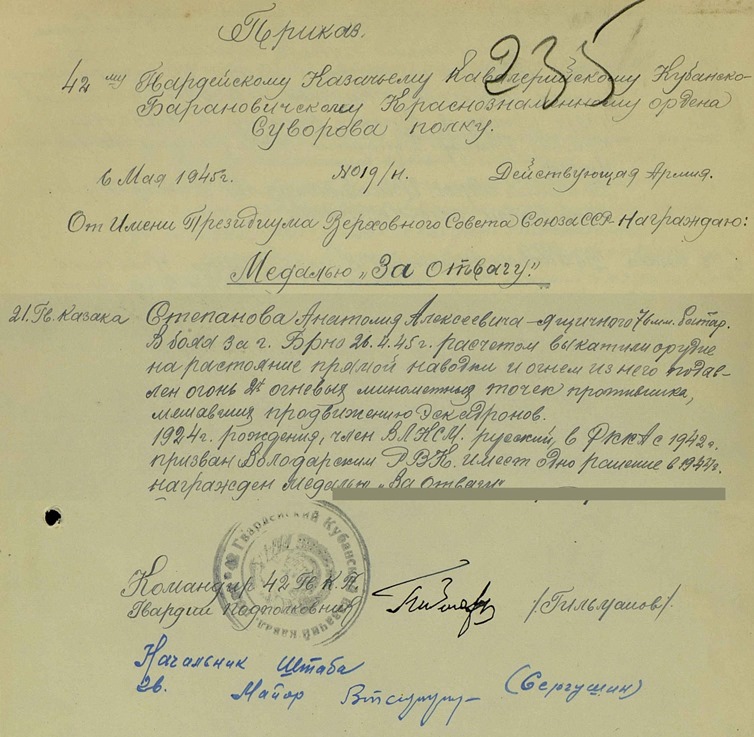 Приказ.
235
42му Гвардейскому Казачьему Кавалерийскому Кубанско-
Барановичскому Краснознаменному ордена
Суворова полку.
6 Мая 1945г. №019/н. Действующая Армия.
От Имени Президиума Верховного Совета Союза ССР-Награждаю:
Медалью „За отвагу".
21. Гв. Казака Степанова Анатолия Алексеевича - ящичного 76 мм. батар.
В боях за г. Брно 26.4.45г. расчетом выкатили орудие
на растояние прямой наводки и огнем из него подав-
лен огонь 2х огневых минометных точек противника,
мешавших продвижению эскадронов.
1924г. рождения, член ВЛКСМ. русский, в РККА с 1942г.
призван Володарским РВК. имеет одно ранение в 1944г.
награжден медалью „За отвагу"
Гвардейский Кубанский
Казачий Кавал.
Командир 42 Гв. К. П.
Гвардии Подполковник /Гильманов/.
Начальник Штаба
гв. Майор (Сергушин)